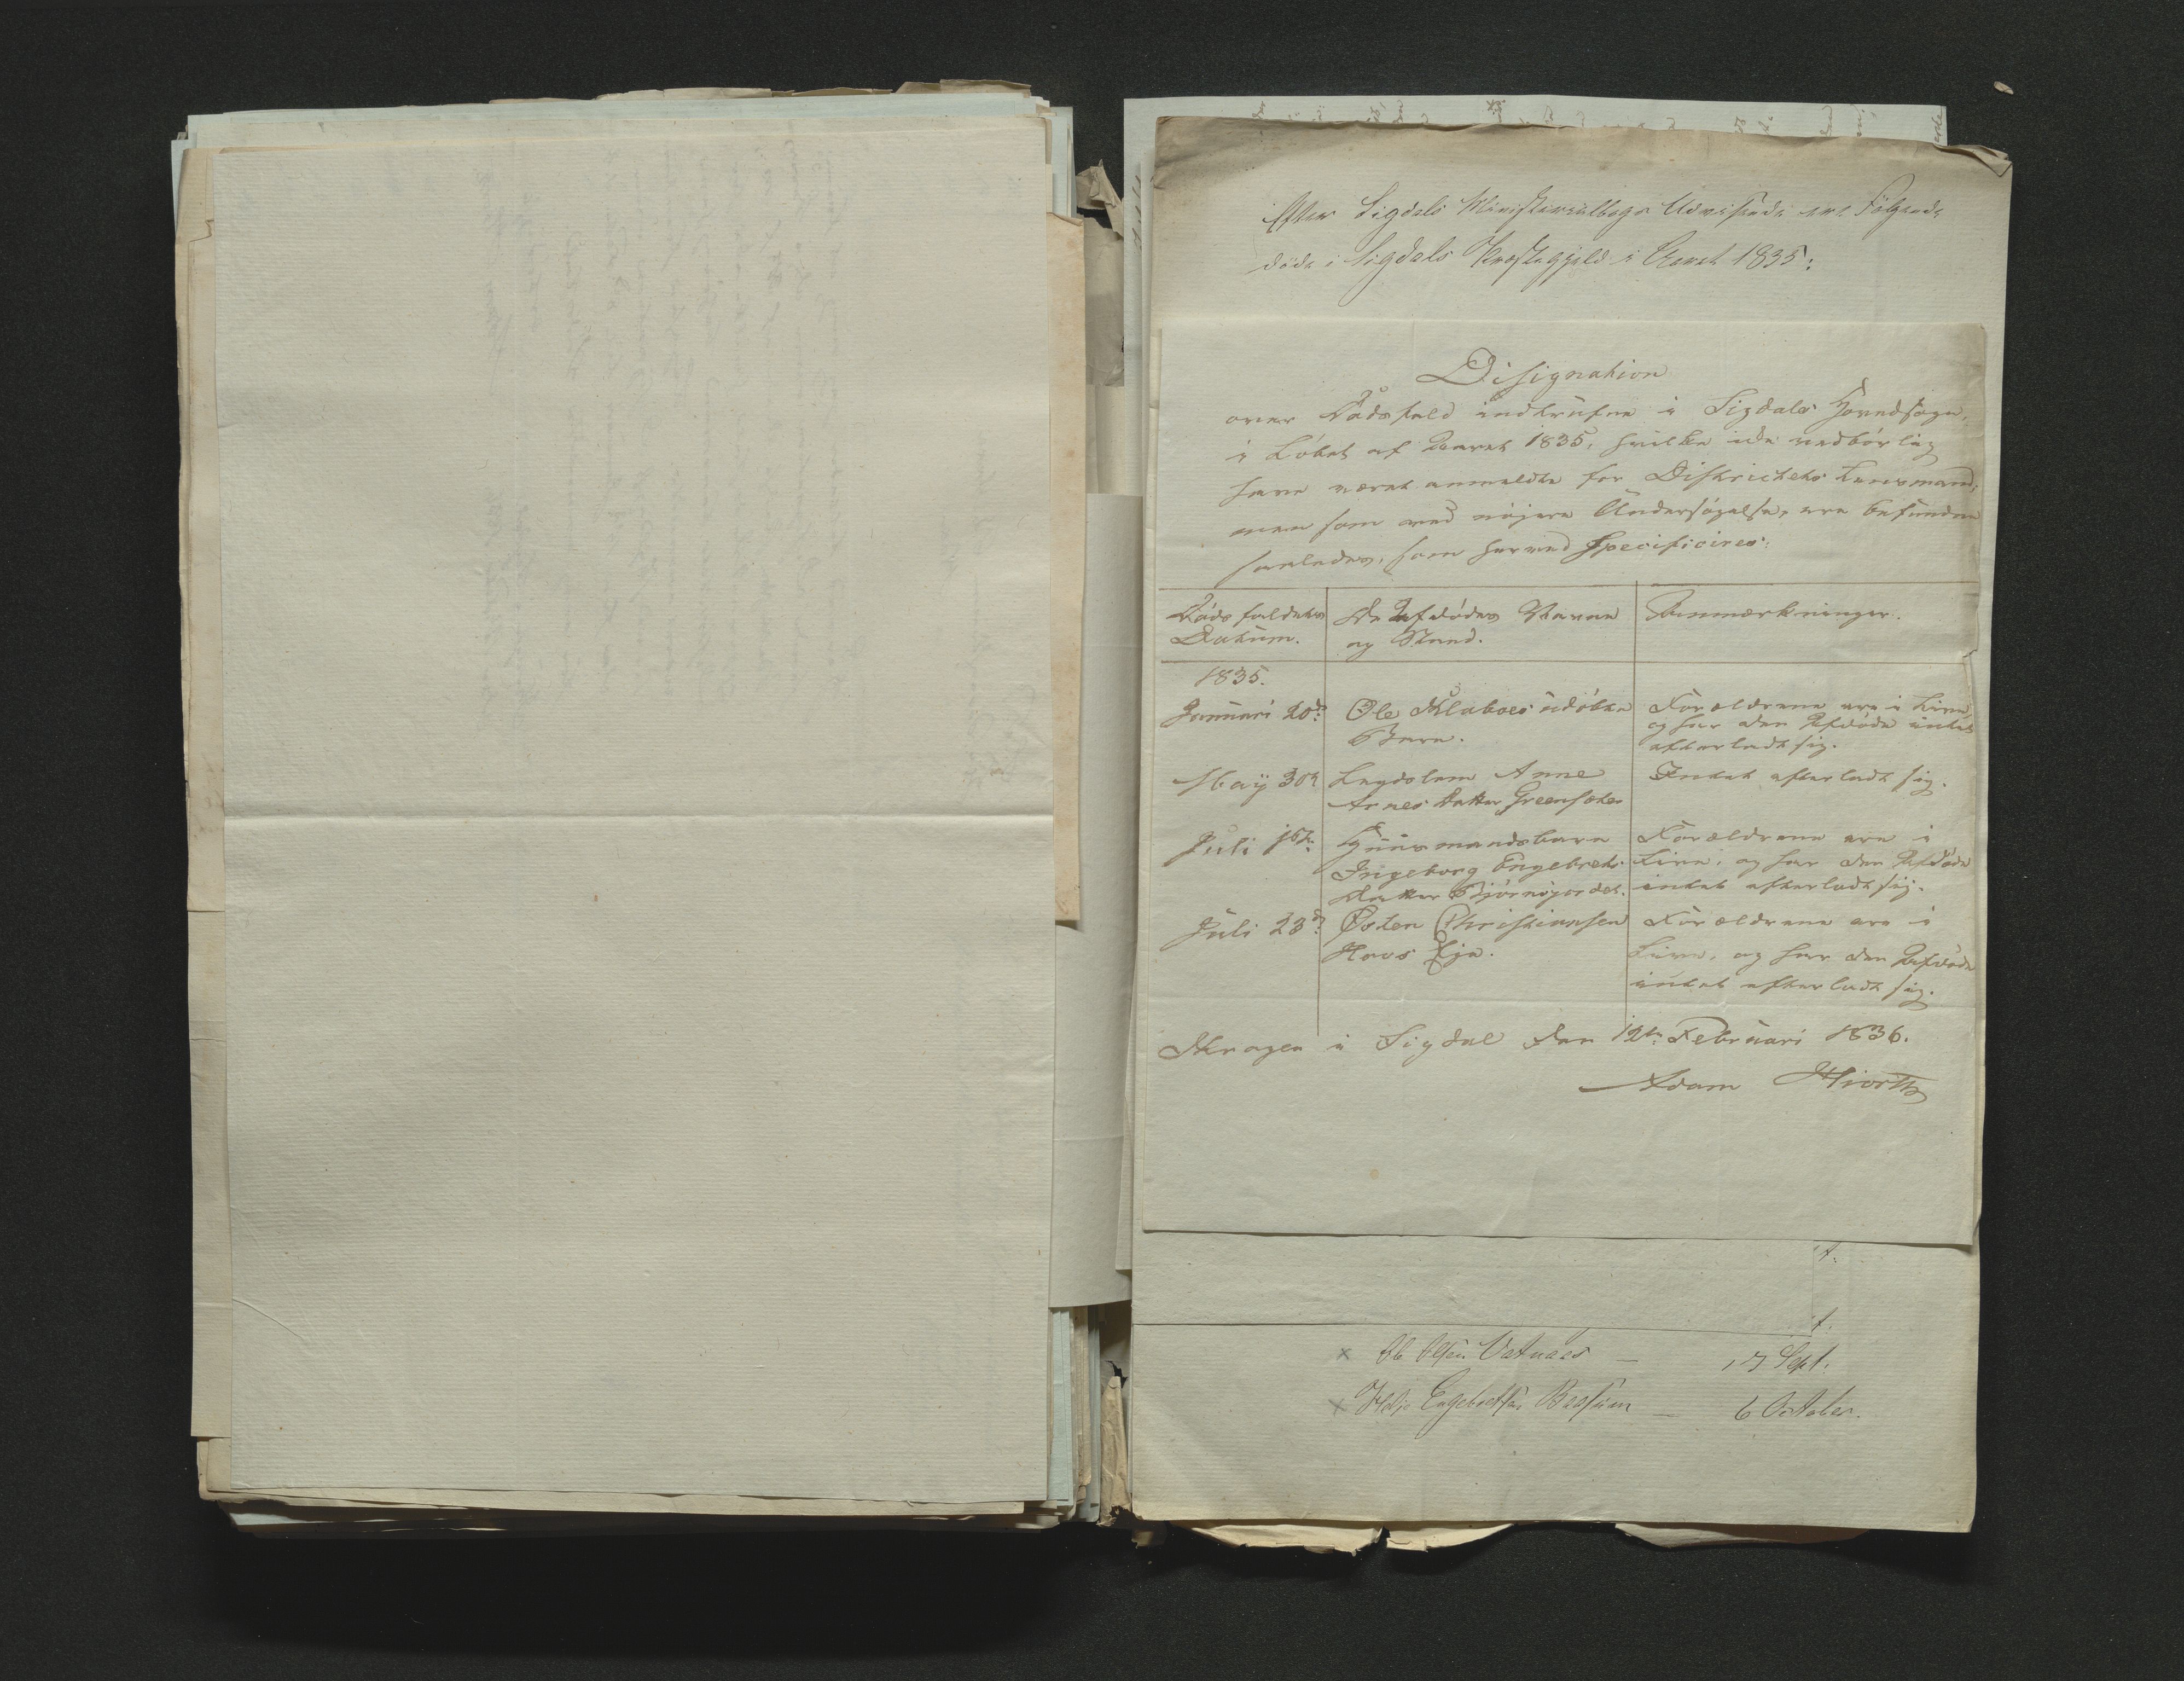 Efter Sigdals Ministerialbogs Udvisende ere Følgende
døde i Sigdals Præstegjeld i Aaret 1835:
Designation
over Dødsfald indtrufne i Sigdals Hovedsogn,
i Løbet af Aaret 1835, hvilke ikke vedbørlig
have været anmeldte for Districtets Lensmand,
men som ved nøjere Undersøgelse, ere befundne
saaledes, som herved Specificeres:
Dødsfaldets
Datum.
De Afdødes Navne
og Stand.
Anmærkninger.
1835.
Januari 20de
Ole Klaboes udøbte
Barn.
Forældrene ere i Live,
og har den Afdøde intet
efterladt sig.
May 30te
Legdslem Anne
Arnes Datter Greensæter
Intet efterladt sig.
Juli
Huusmandsbarn
Ingeborg Engebrets
Datter
Forældrene ere i
Live, og har den Afdøde
intet efterladt sig.
Juli 23de
Østen Christiansen
Hovs Eje.
Forældrene ere i
Live, og har den Afdøde
intet efterladt sig.
i Sigdal den 12te Februari 1836.
Adam Hiorth
t.
t.
x Ole Olsen Vatnaas — 17 Sept.
x Helje Engebretsen — 6 October.